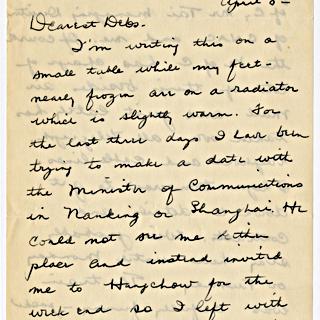 April 8-
Dearest Debs-
I'm writing this on a
small table while my feet-
nearly frozen are on a radiator
which is slightly warm. For
the last three days I have been
trying to make a date with
the Minister of Communications
in Nanking or Shanghai. He
could not see me either
place and instead invited
me to Hangchow for the
week end so I left with